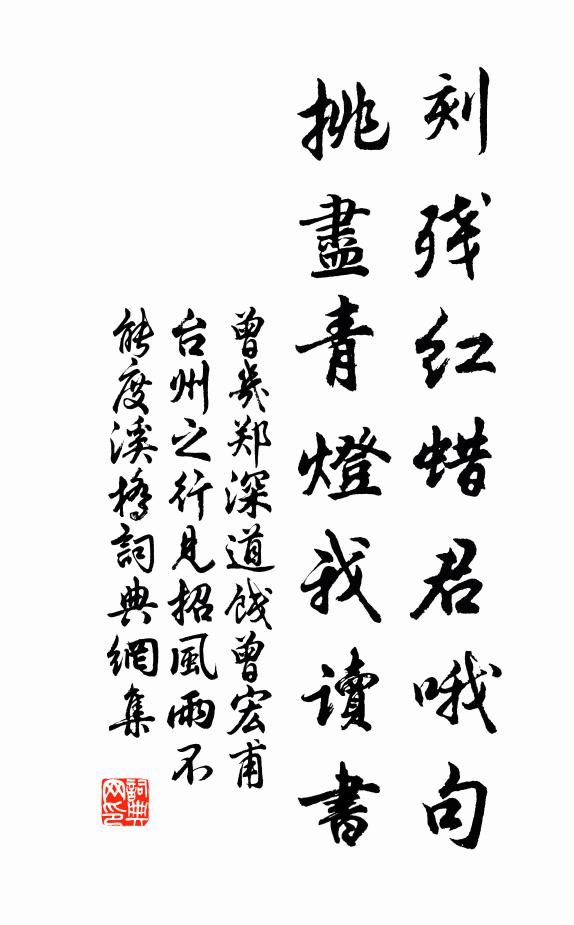 刻残红蜡君哦句
挑盡青燈我讀書
曾幾郑深道餞曾宏甫
台州之行見招風雨不
能度溪橋詞典網集
詞典
网印